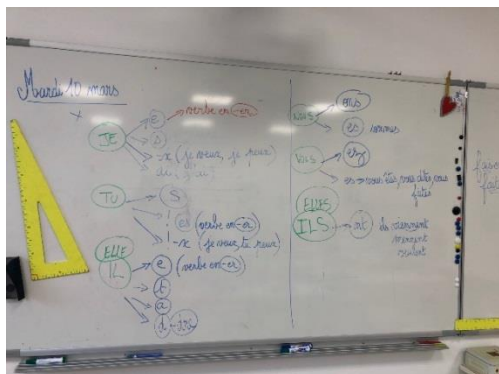 Mardi 10 mars
JE
e → verbe en -er
s
-x (je veux, je peux)
ai j'ai
TU
s
! es (verbe en -er)
! -x je veux tu peux
ELLE
IL
e (verbe en -er)
t
a
d
NOUS
ons
es sommes
VOUS
ez
es → vous êtes, vous dites, vous
faites
ELLES
ILS
nt ils viennent
viennent
veulent